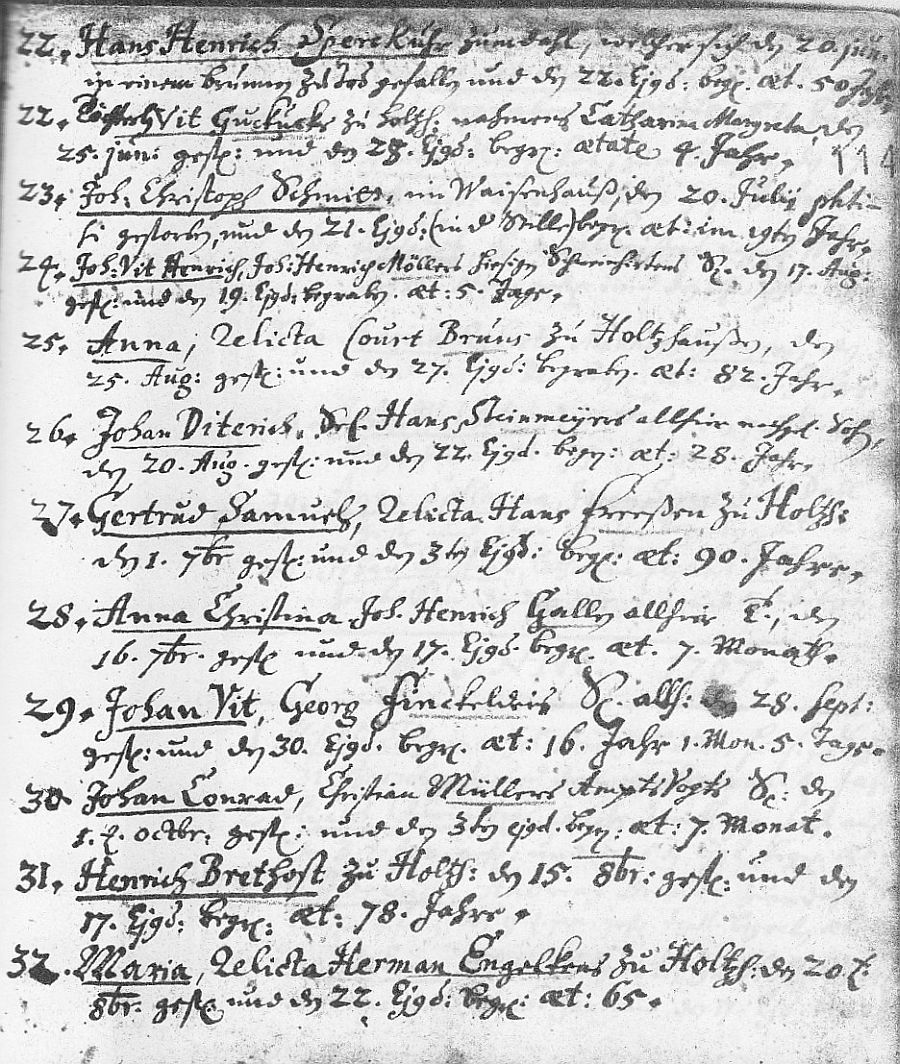 22. Hans Henrich Sperckuhr zum dahl, welcher sich den 20. jun.
in einem brunnen zu tod gefallen und den 22. Ejgd: begr. æt. 50 Jahr.
22. Vit Guckucks zu Holtzh: nahmens Catharina Margreta den
25. jun: gest: und den 28. Ejgd: begr: ætate 4. Jahr.
114
23. Joh: Christoph Schmitt, im Waisenhauß, den 20. Julij phti-
si gestorben, und den 21. Ejgd: (in d Still) begr. æt: im 19ten Jahr.
24. Joh: Vit Henrich, Joh: Henrich Möllers hiesigen S. den 17. Aug:
gest: und den 19. Ejgd: begraben. æt: 5. Tage.
25. Anna, Relicta Court Bruns zu Holtzhaußen, den
25. Aug: gest: und den 27. Ejgd: begraben. æt: 82. Jahr.
26. Johan Diterich, Sel. Hans Steinmeyers allhier nachgel. Sohn,
den 20. Aug. gest: und den 22. Ejgd. begr: æt: 28. Jahr.
27. Gertrud Samuels, Relicta Hans Freeßen zu Holtzh:
den 1. 7br gest: und den 3ten Ejgd: begr: æt: 90. Jahre.
28. Anna Christina Joh. Henrich Gallen allhier T., den
16. 7br. gest und den 17. Ejgd. begr. æt. 7. Monath.
29. Johan Vit, Georg Finckeldeis S. allh: 28. Sept:
gest: und den 30. Ejgd. begr. æt: 16. Jahr 1. Mon. 5. Tage.
30. Johan Conrad, Christian Müllers Ampts Vogts S: den
1. octbr: gest: und den 3ten ejgd. begr: æt: 7. Monat.
31. Henrich Brethost zu Holtzh: den 15. 8br: gest: und den
17. Ejgd: begr: æt: 78. Jahre.
32. Maria, Relicta Herman Engelkens zu Holtzh: den 20t.
8br: gest und den 22. Ejgd: begr: æt: 65.